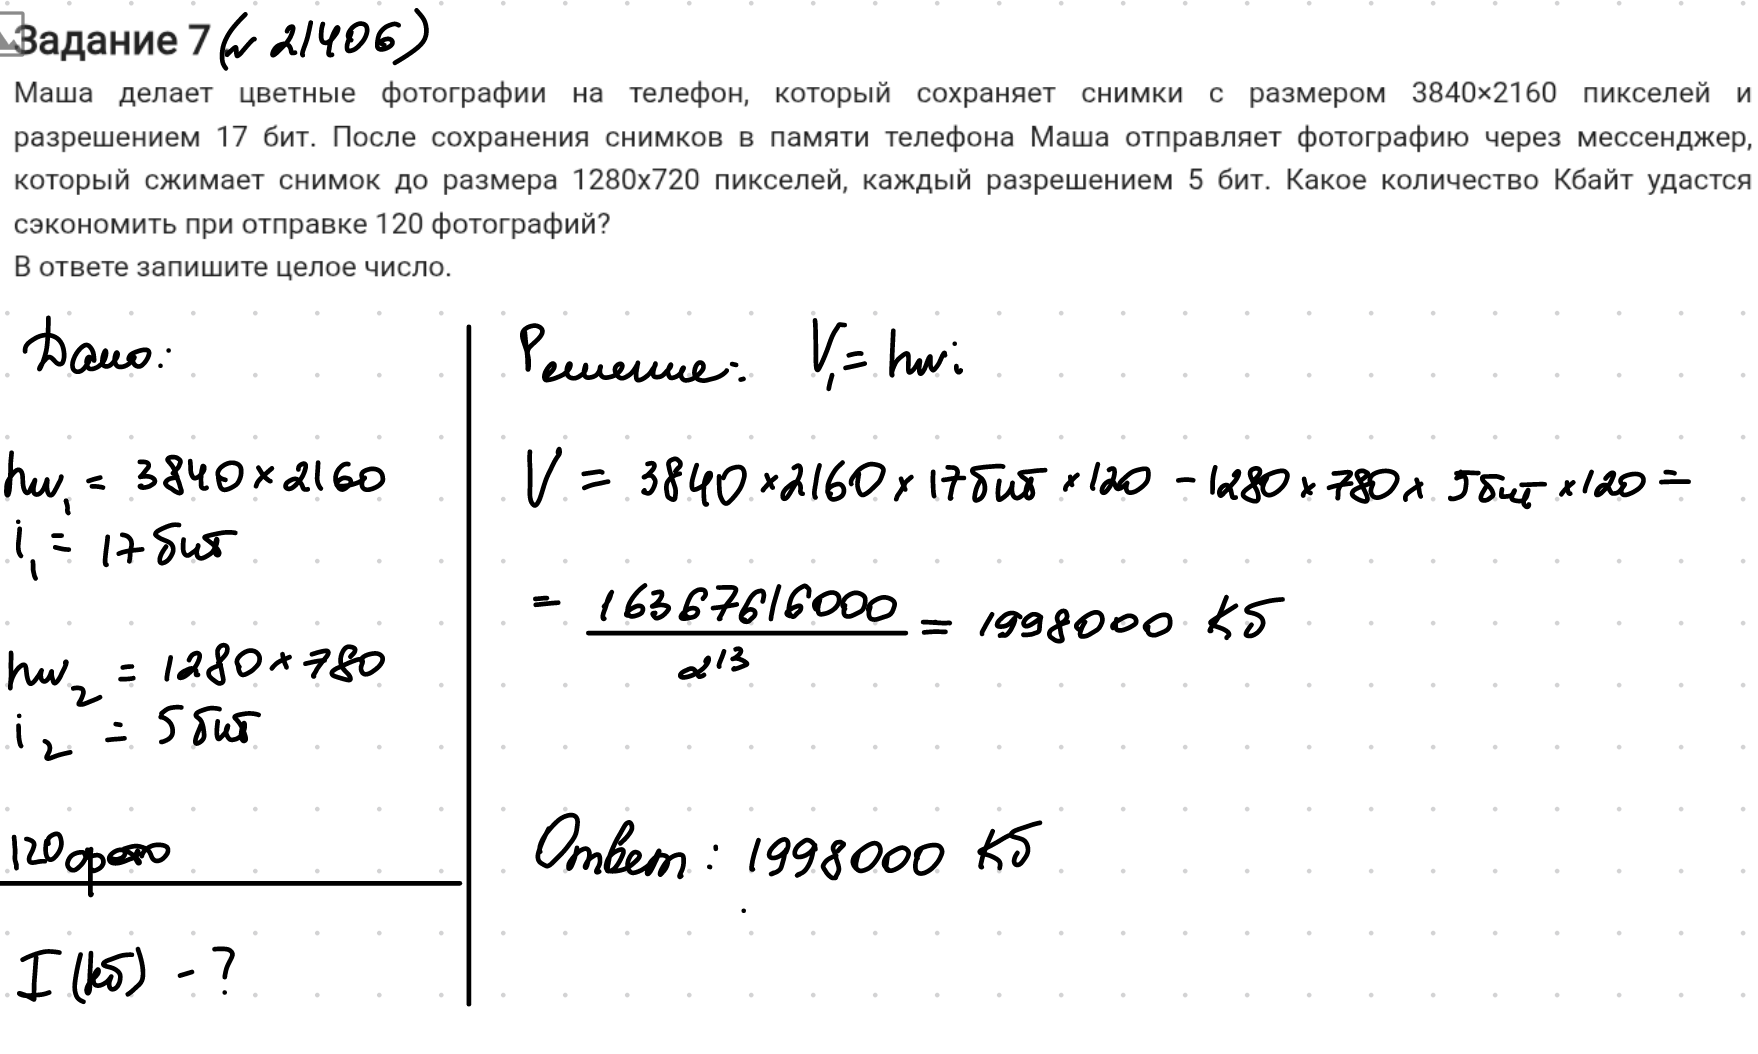 Задание 7 (№ 21406)
Маша делает цветные фотографии на телефон, который сохраняет снимки с размером 3840×2160 пикселей и
разрешением 17 бит. После сохранения снимков в памяти телефона Маша отправляет фотографию через мессенджер,
который сжимает снимок до размера 1280х720 пикселей, каждый разрешением 5 бит. Какое количество Кбайт удастся
сэкономить при отправке 120 фотографий?
В ответе запишите целое число.
Дано:
hw₁ = 3840 × 2160
i₁ = 17 бит
hw₂ = 1280 × 780
i₂ = 5 бит
120 фото
I (кб) - ?
Решение: V₁ = hwi
V = 3840 × 2160 × 17 бит × 120 - 1280 × 780 × 5 бит × 120 =
= 16367616000 / 2¹³ = 1998000 Кб
Ответ: 1998000 Кб